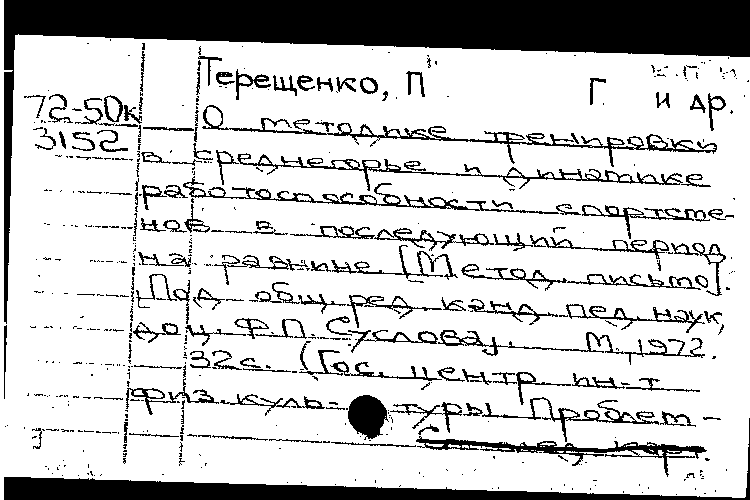 К.П
Терещенко, П Г и др.
72-50к
3152
О методике тренировки
в среднегорье и динамике
работоспособности спортсме-
нов в последующий период
на равнине. [Метод. письмо].
[Под общ. ред. канд. пед. наук,
доц. Ф.П. Суслова]. М., 1972.
32с. (Гос. центр. ин-т
физ. куль- туры. Проблем-
След. карт.